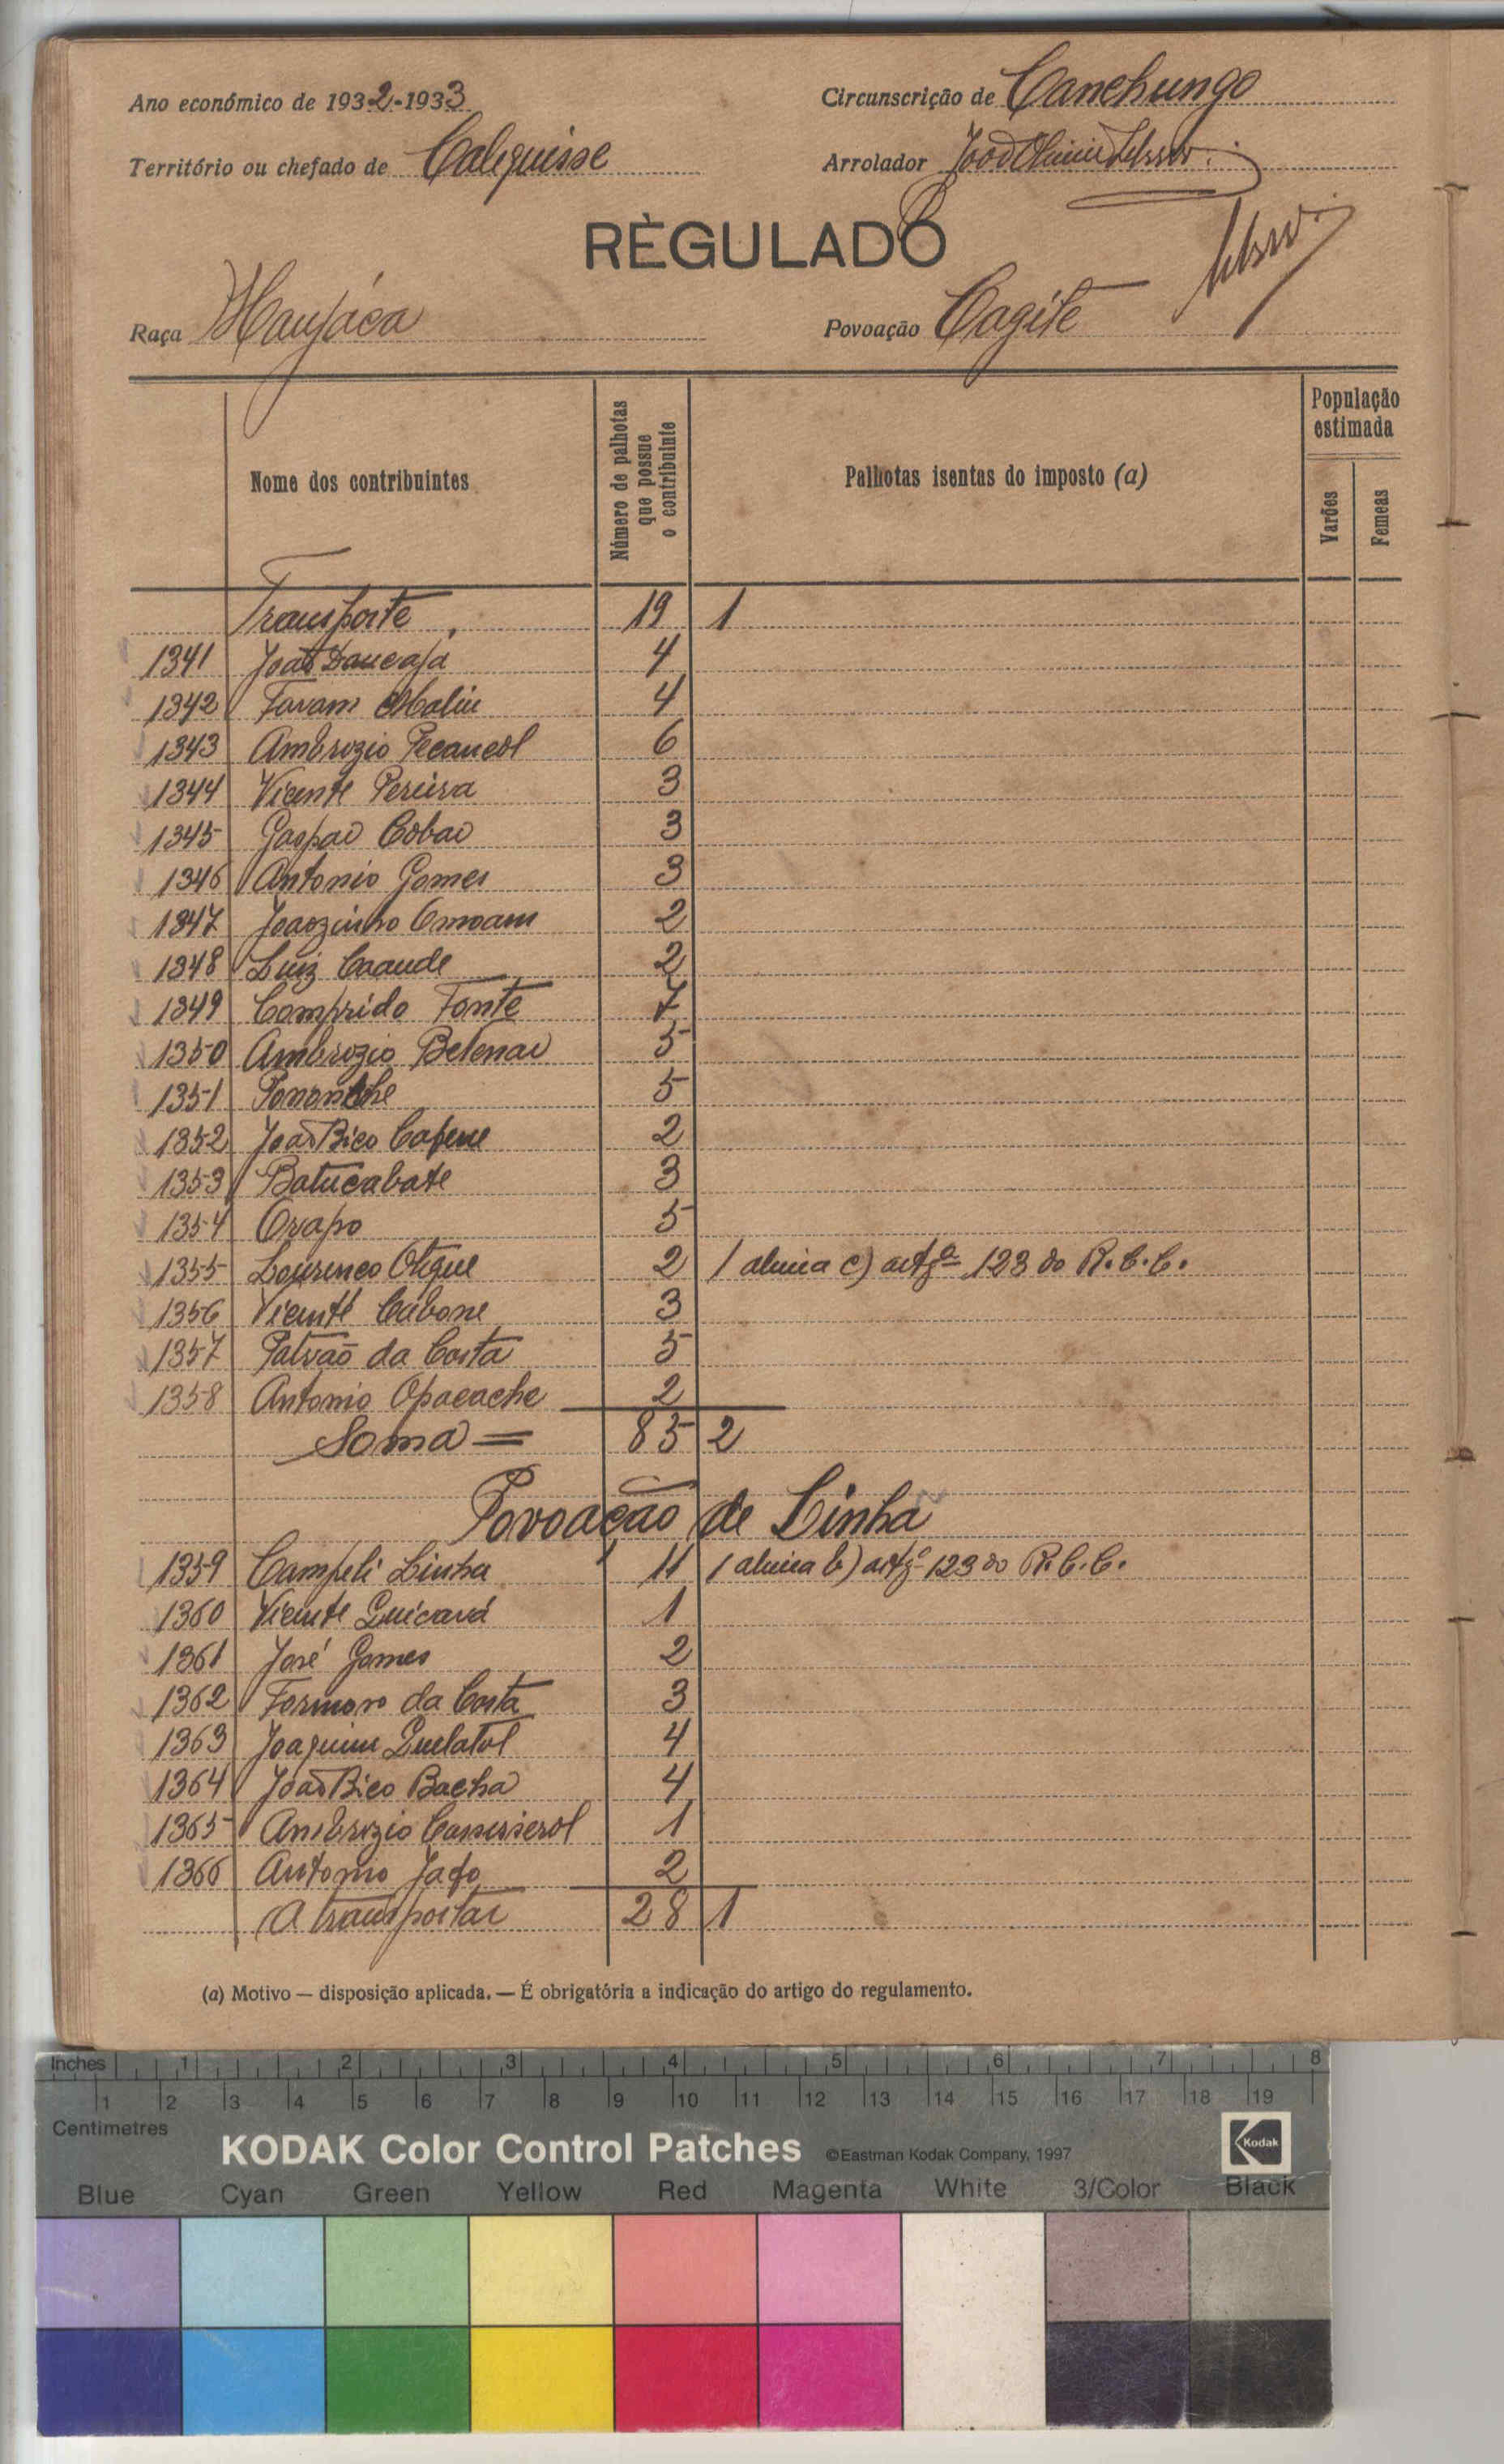 Ano económico de 1932-1933 Circunscrição de Canchungo
Território ou chefado de Calequisse Arrolador João
RÈGULADO
Raça Manjáca Povoação Cagite
Nome dos contribuintes
Número de palhotas que possue o contribuinte
Palhotas isentas do imposto (a)
População estimada
Varões
Femeas
Transporte 19 1
1341 João Daucajá 4
1342 Favam Maliu 4
1343 Ambrozio Pecancol 6
1344 Vicente Pereira 3
1345 Gaspar Cobar 3
1346 Antonio Gomes 3
1347 Joaozinho Omoam 2
1348 Luiz Caaude 2
1349 Comprido Fonte 7
1350 Ambrozio Betenar 5
1351 5
1352 João Bico Cafene 2
1353 Batucabate 3
1354 Orapo 5
1355 Lourenco Olique 2 1 alinea c) artgº 123 do R.C.C.
1356 Vicente Cabone 3
1357 Patrão da Costa 5
1358 Antonio Opacache 2
Soma = 85 2
Povoação de Linha
1359 Campeli Linha 11 1 alinea b) artgº 123 do R.C.C.
1360 Vicente Quicará 1
1361 José Gomes 2
1362 Formoso da Costa 3
1363 Joaquim Quelatol 4
1364 João Bico Bacha 4
1365 Ambrozio 1
1366 Antonio Jafo 2
A transportar 28 1
(a) Motivo — disposição aplicada. — É obrigatória a indicação do artigo do regulamento.
Inches 1 2 3 4 5 6 7 8
1 2 3 4 5 6 7 8 9 10 11 12 13 14 15 16 17 18 19
Centimetres
KODAK Color Control Patches ©Eastman Kodak Company, 1997 Kodak
Blue Cyan Green Yellow Red Magenta White 3/Color Black